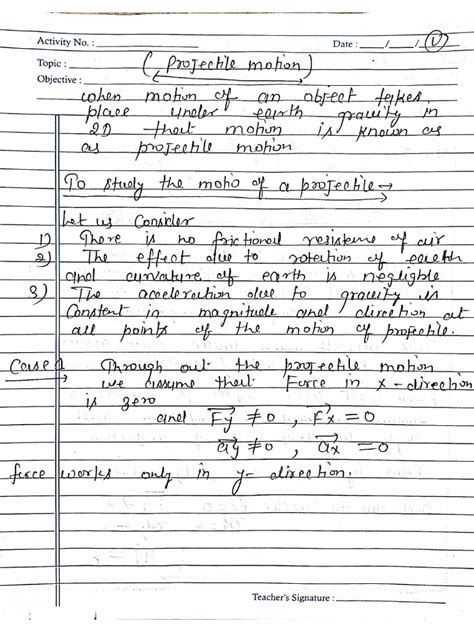 Activity No. :
Date : / / (1)
Topic : (Projectile motion)
Objective :
when motion of an object takes
place under earth gravity in
2D that motion is known as
as projectile motion
To study the motio of a projectile →
Let us Consider
1) There is no frictional resistence of air
2) The effect due to rotation of earth
and curvature of earth is negligble
3) The acceleration due to gravity is
Constent in magnitude and direction at
all points of the motion of projectile.
Case 1 Through out the projectile motion
→ we assume that Force in x-direction
is zero
and Fy ≠ 0 , Fx = 0
ay ≠ 0 , ax = 0
force works only in y- direction.
Teacher's Signature :